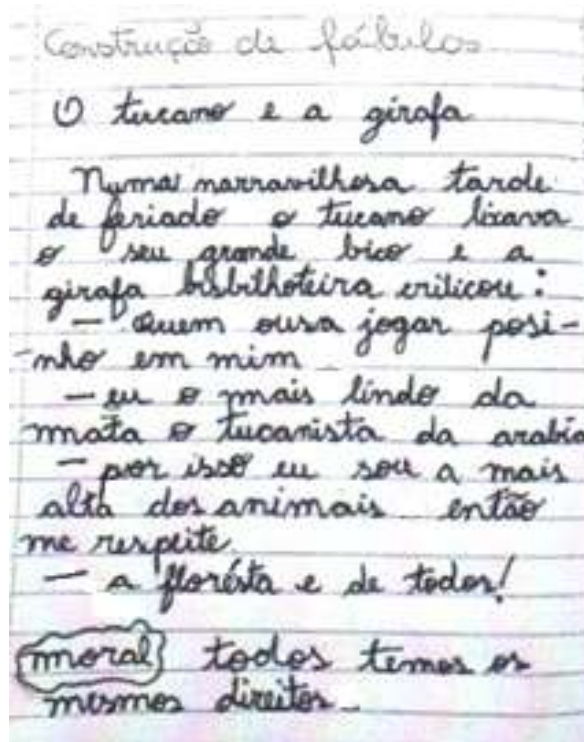 Construção de fábulas
O tucano e a girafa
Numa marravilhosa tarde
de feriado o tucano lixava
o seu grande bico e a
girafa bisbilhoteira criticou:
— Quem ousa jogar posi-
nho em mim
— eu o mais lindo da
mata o tucanista da arabia
— por isso eu sou a mais
alta dos animais então
me respeite
— a florésta e de todos!
moral todos temos os
mesmos direitos